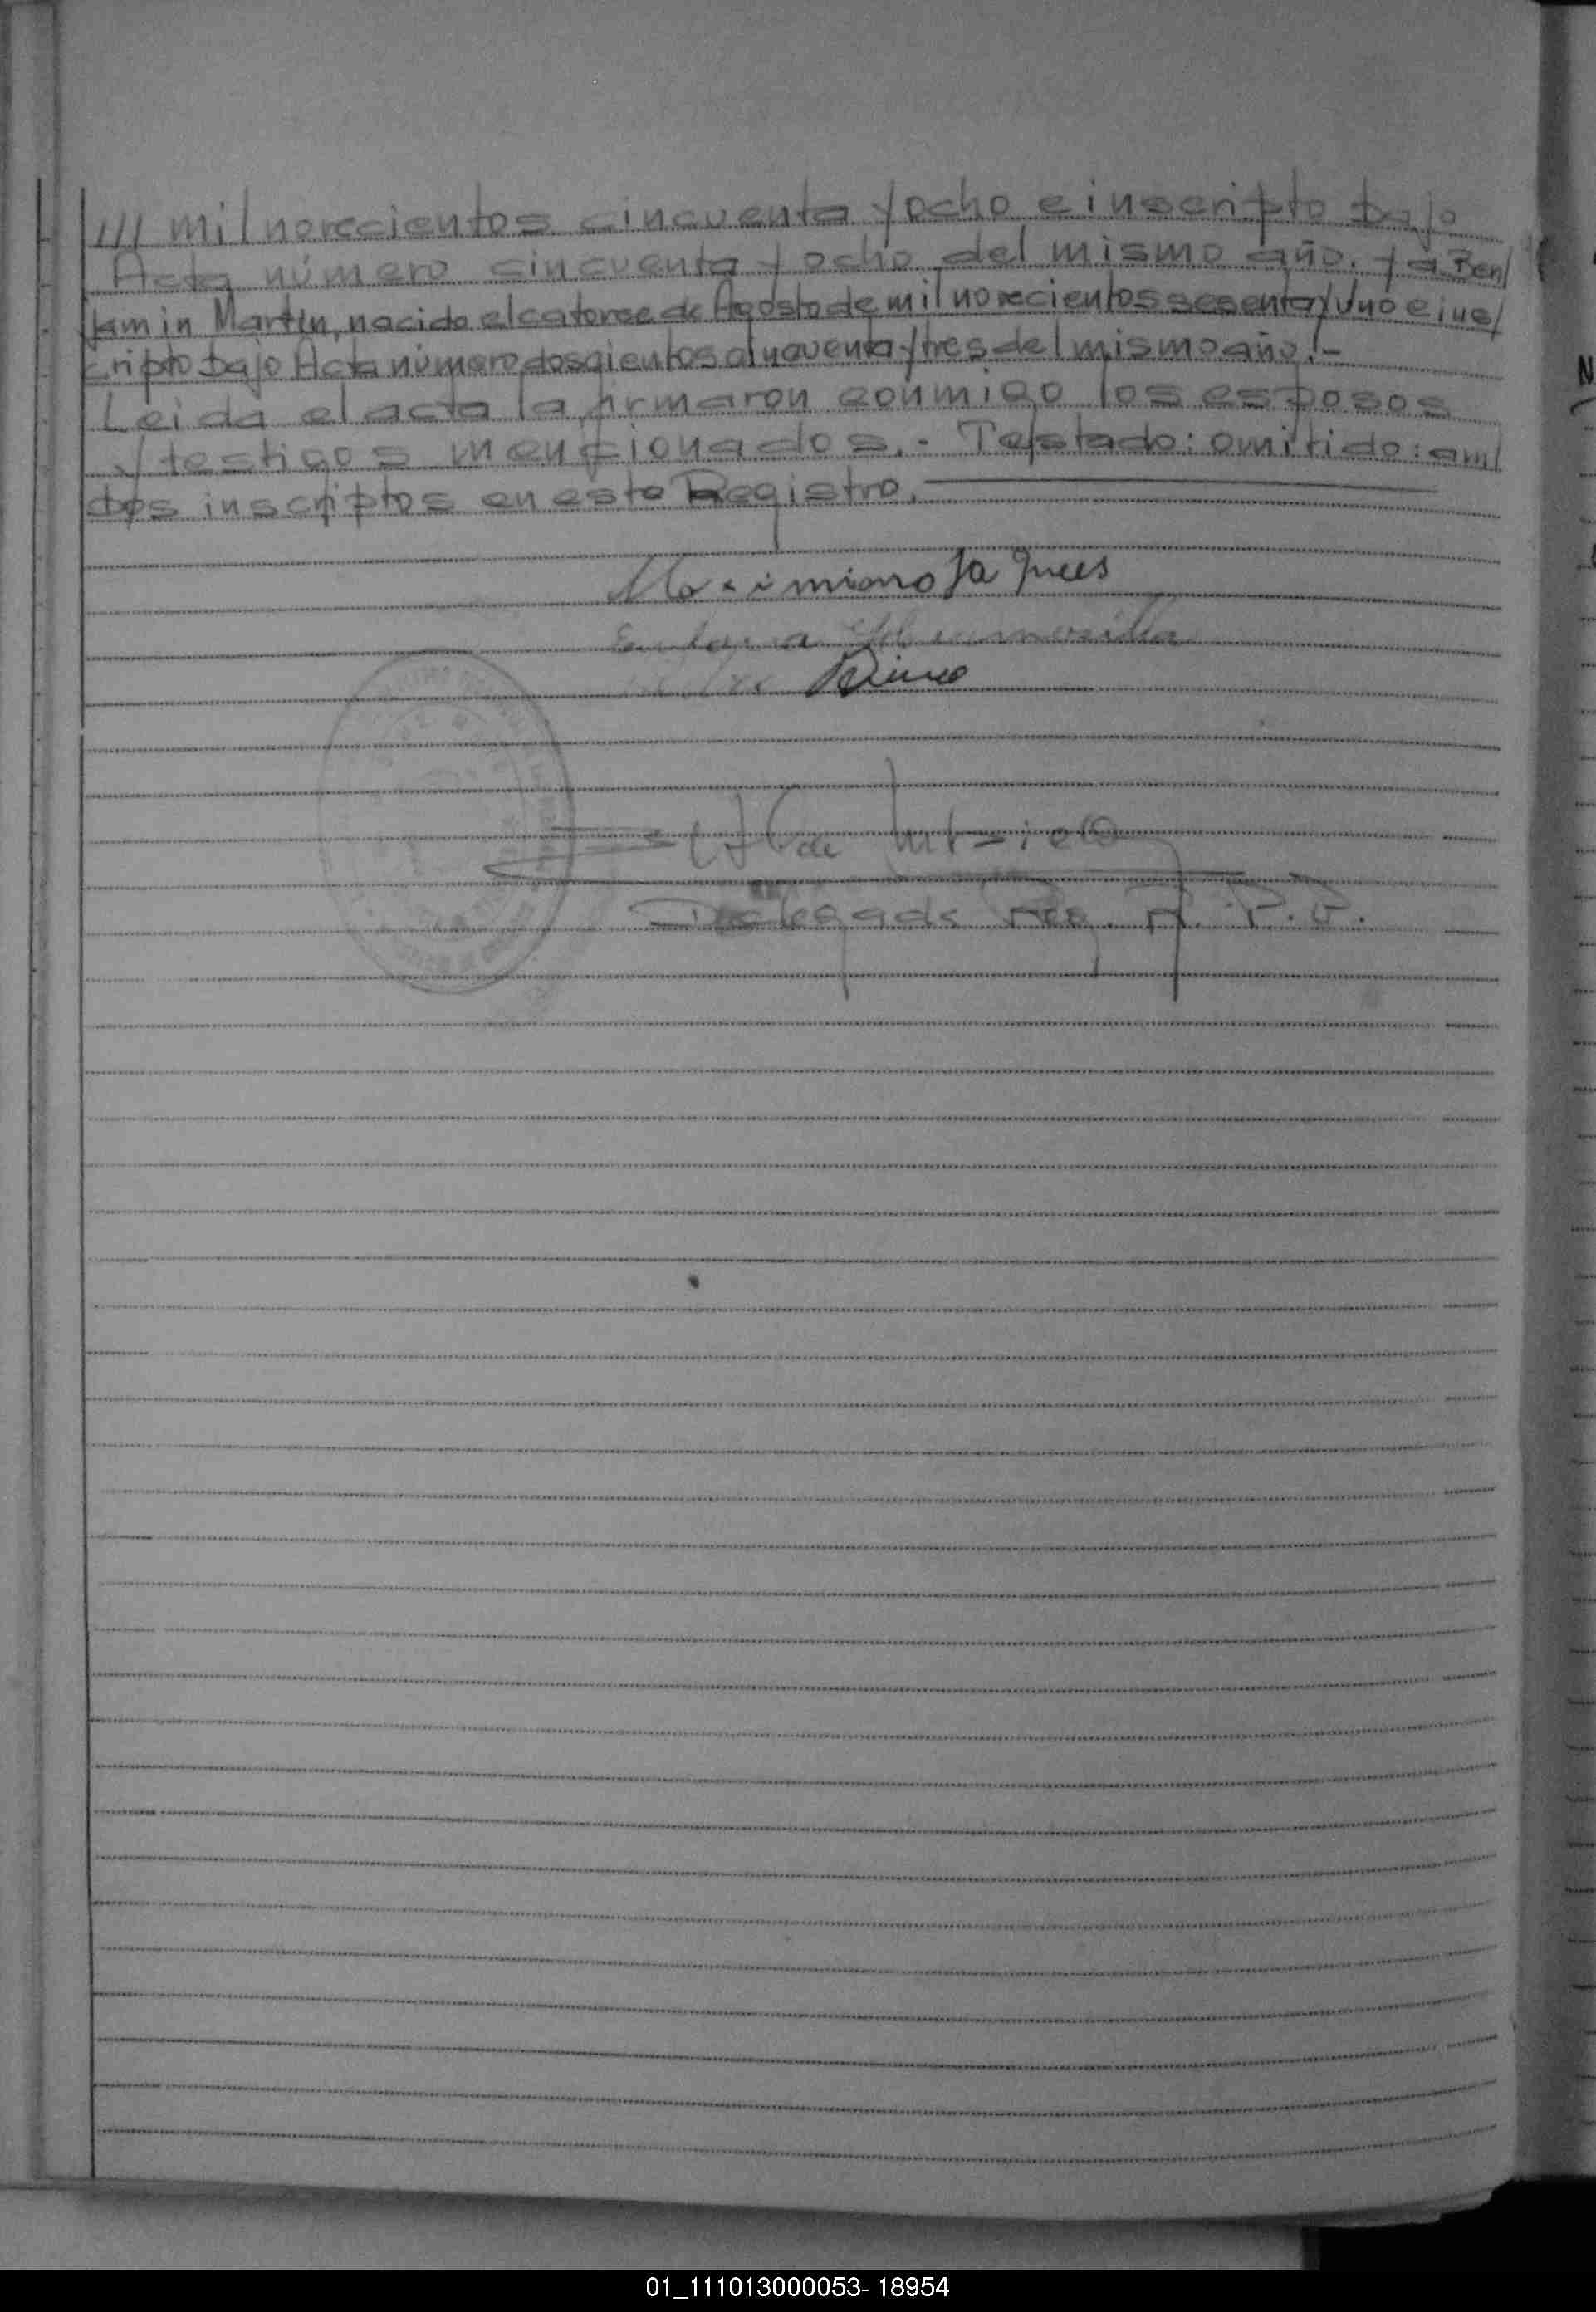 /// mil novecientos cincuenta y ocho e inscripto bajo
Acta número cincuenta y ocho del mismo año. y a Ben/
jamin Martín, nacido el catorce de Agosto de mil novecientos sesenta y uno e ins/
cripto bajo Acta número doscientos noventa y tres del mismo año.-
Leida el acta la firmaron conmigo los esposos
y testigos mencionados.- Testado: omitido: am/
bos inscriptos en este Registro.
Maximiano Jaques
Delegado Reg. R. P. P.
N
01_111013000053- 18954